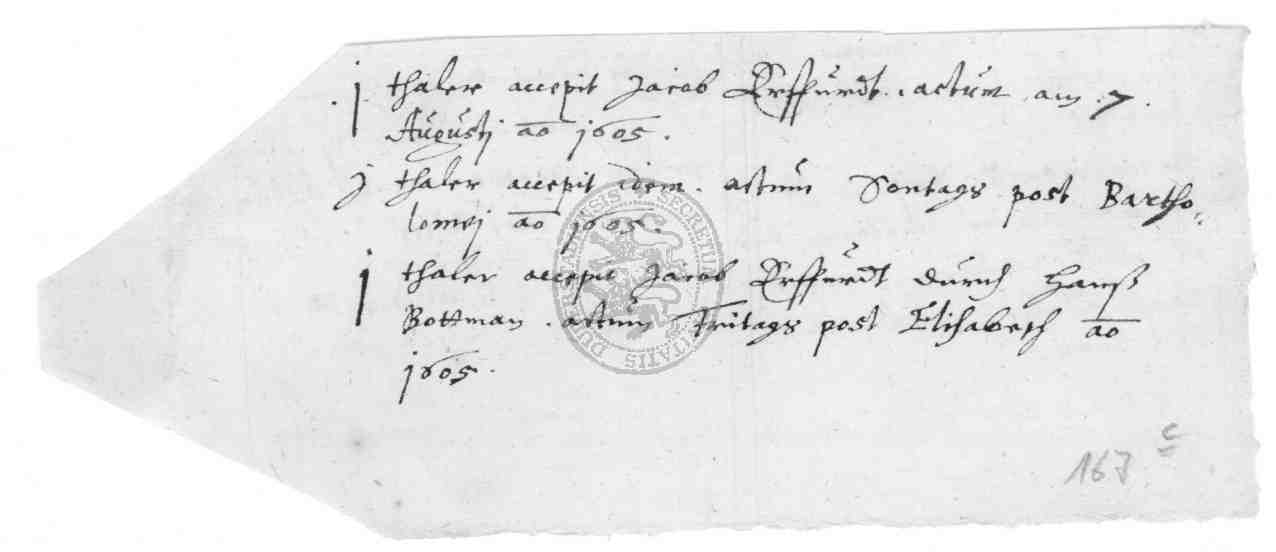 j thaler accepit Jacob Erffurdt. actum am .7.
Augustj ao 1605.
j thaler accepit idem. actum Sontags post Bartho-
lomej ao 1605.
j thaler accepit Jacob Erffurdt durch Hanß
Bottman. actum Fritags post Elisabeth ao
1605.
167 c